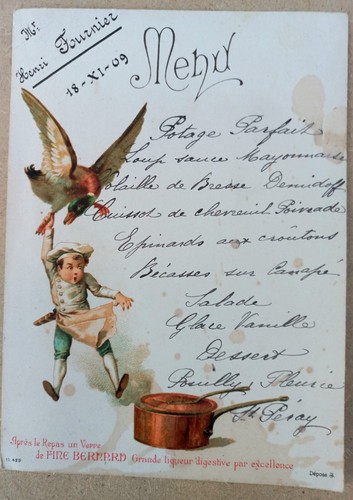 Mr
Henri Fournier
18-XI-09
Menu
Potage Parfait
Loup sauce Mayonnaise
Volaille de Bresse Demidoff
Cuissot de chevreuil Poivrade
Epinards aux croûtons
Bécasses sur Canapé
Salade
Glace Vanille
Dessert
Pouilly Fleurie
St Péray
Après le Repas un Verre
de FINE BERNARD Grande liqueur Digestive par excellence
Déposé